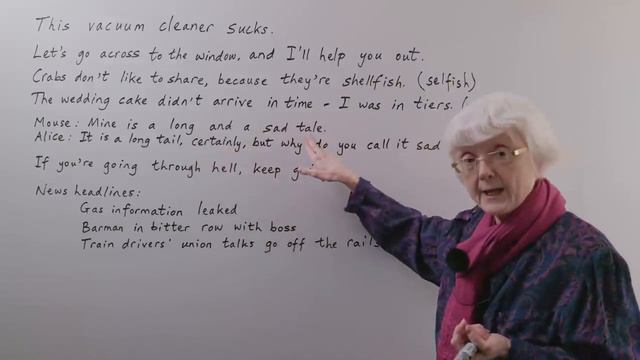 This vacuum cleaner sucks.
Let's go across to the window, and I'll help you out.
Crabs don't like to share, because they're shellfish. (selfish)
The wedding cake didn't arrive in time - I was in tiers. (
Mouse: Mine is a long and a sad tale.
Alice: It is a long tail, certainly, but why do you call it sad
If you're going through hell, keep
News headlines:
Gas information leaked
Barman in bitter row with boss
Train drivers' union talks go off the rails